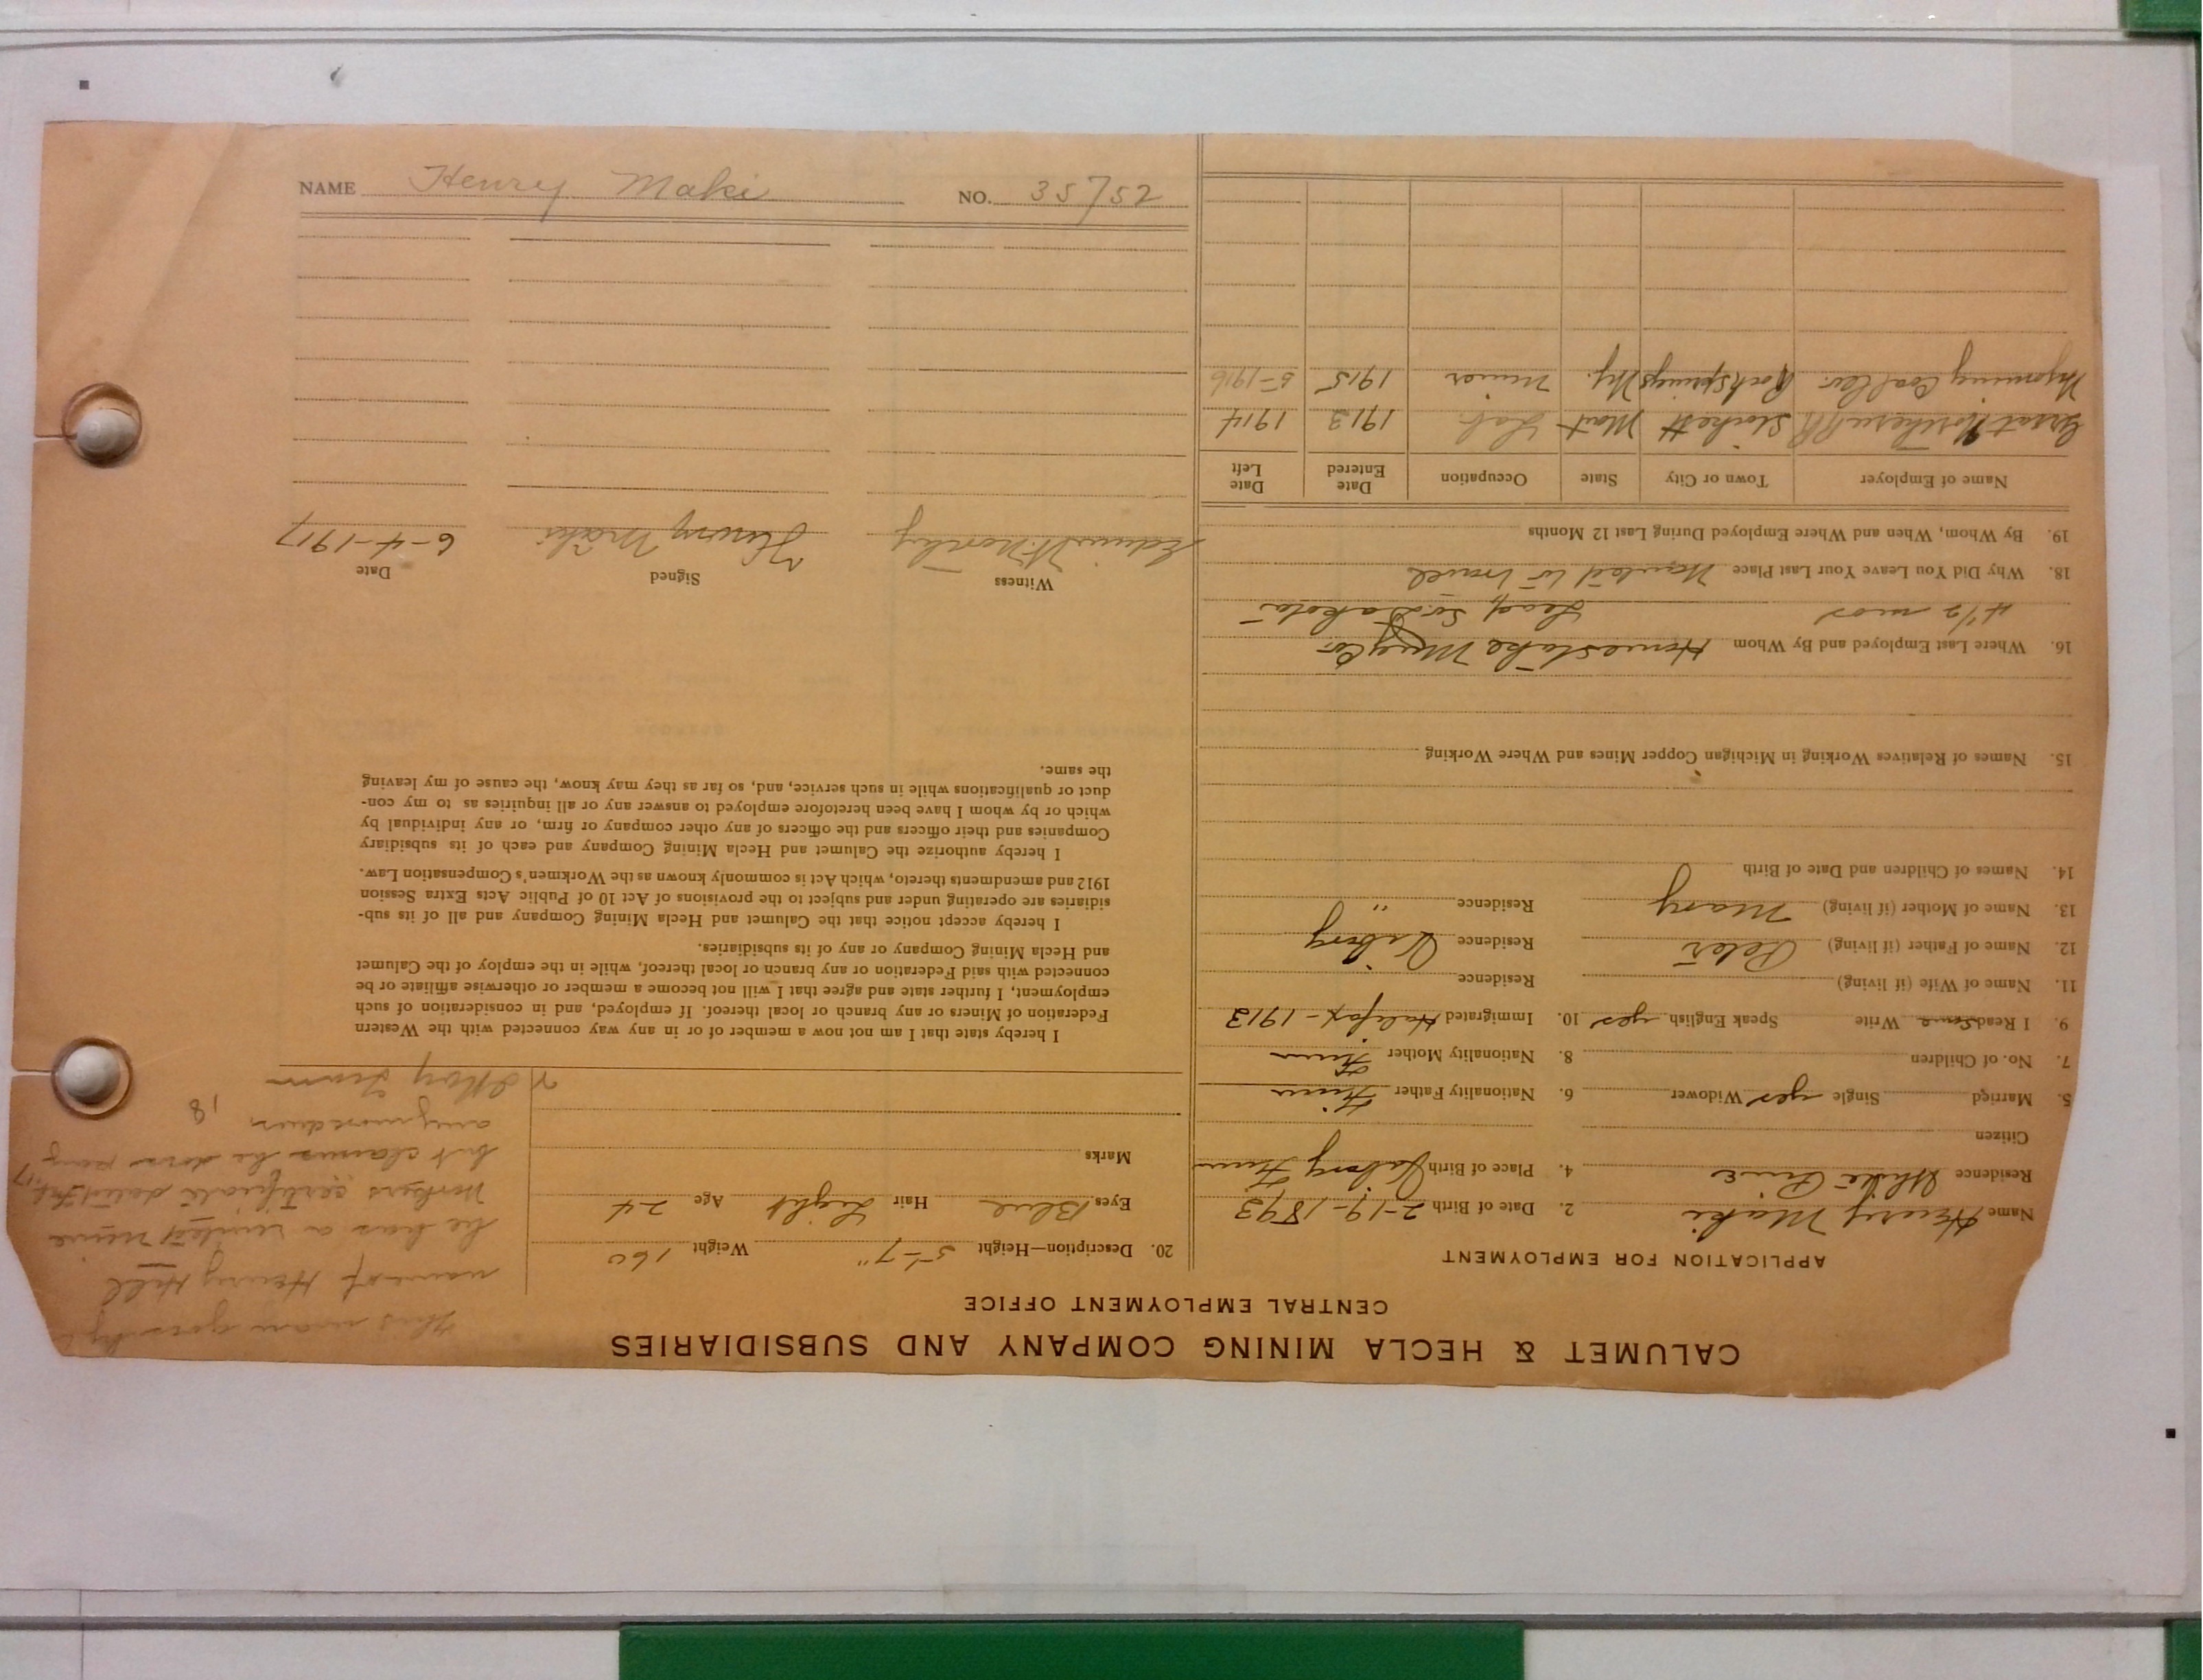 NAME Henry Maki NO. 35752
CALUMET & HECLA MINING COMPANY AND SUBSIDIARIES
CENTRAL EMPLOYMENT OFFICE
APPLICATION FOR EMPLOYMENT
Name Henry Maki 2. Date of Birth 2-19-1893
Residence White Pine 4. Place of Birth Viborg Finn
Citizen
5. Married Single yes Widower 6. Nationality Father Finn
7. No. of Children 8. Nationality Mother Finn
9. I Read some Write Speak English yes 10. Immigrated Halifax-1913
11. Name of Wife (if living) Residence
12. Name of Father (if living) Peter Residence Viborg
13. Name of Mother (if living) Mary Residence "
14. Names of Children and Date of Birth
15. Names of Relatives Working in Michigan Copper Mines and Where Working
16. Where Last Employed and By Whom Homestake Mng Co.
4½ mos Lead, So. Dakota
18. Why Did You Leave Your Last Place Wanted to travel
19. By Whom, When and Where Employed During Last 12 Months
Name of Employer Town or City State Occupation Date Entered Date Left
Great Northern RR Stockett Mont Lab. 1913 1914
Wyoming Coal Co. Rock Springs Wy. miner 1915 5-1916
20. Description—Height 5'-7" Weight 160
Eyes Blue Hair Light Age 24
Marks
This man goes by
name of Henry Hill
he has a united mine
workers certificate dated
but claims he dont pay
any more dues
I hereby state that I am not now a member of or in any way connected with the Western
Federation of Miners or any branch or local thereof. If employed, and in consideration of such
employment, I further state and agree that I will not become a member or otherwise affiliate or be
connected with said Federation or any branch or local thereof, while in the employ of the Calumet
and Hecla Mining Company or any of its subsidiaries.
I hereby accept notice that the Calumet and Hecla Mining Company and all of its sub-
sidiaries are operating under and subject to the provisions of Act 10 of Public Acts Extra Session
1912 and amendments thereto, which Act is commonly known as the Workmen's Compensation Law.
I hereby authorize the Calumet and Hecla Mining Company and each of its subsidiary
Companies and their officers and the officers of any other company or firm, or any individual by
which or by whom I have been heretofore employed to answer any or all inquiries as to my con-
duct or qualifications while in such service, and, so far as they may know, the cause of my leaving
the same.
Witness Signed Date
Henry Maki 6-4-1917